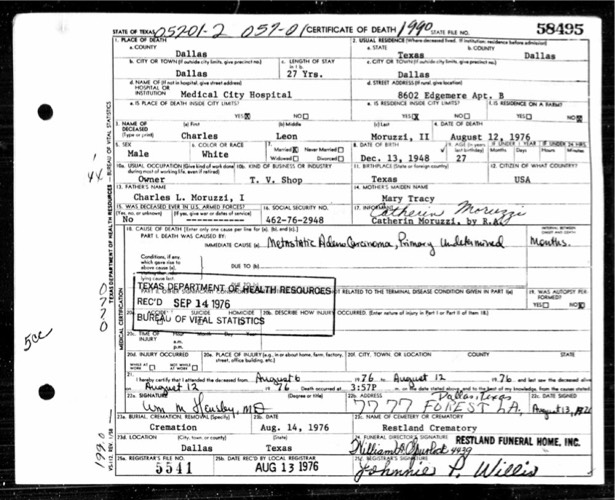 05201-2 057-01 1990
STATE OF TEXAS CERTIFICATE OF DEATH STATE FILE NO. 58495
1. PLACE OF DEATH 2. USUAL RESIDENCE (Where deceased lived. If institution: residence before admission)
a. COUNTY Dallas a. STATE Texas b. COUNTY Dallas
b. CITY OR TOWN (If outside city limits, give precinct no.) c. LENGTH OF STAY in 1 b. c. CITY OR TOWN (If outside city limits, give precinct no.)
Dallas 27 Yrs. Dallas
d. NAME OF (If not in hospital, give street address) HOSPITAL OR INSTITUTION d. STREET ADDRESS (If rural, give location)
Medical City Hospital 8602 Edgemere Apt. B
e. IS PLACE OF DEATH INSIDE CITY LIMITS? e. IS RESIDENCE INSIDE CITY LIMITS? f. IS RESIDENCE ON A FARM?
YES X NO YES X NO YES NO X
3. NAME OF DECEASED (Type or print) (a) First (b) Middle (c) Last 4. DATE OF DEATH
Charles Leon Moruzzi, II August 12, 1976
5. SEX 6. COLOR OR RACE 7. Married X Never Married Widowed Divorced 8. DATE OF BIRTH 9. AGE (In years last birthday) IF UNDER 1 YEAR Months Days IF UNDER 24 HRS. Hours Min.
Male White Dec. 13, 1948 27
10a. USUAL OCCUPATION (Give kind of work done during most of working life, even if retired) 10b. KIND OF BUSINESS OR INDUSTRY 11. BIRTHPLACE (State or foreign country) 12. CITIZEN OF WHAT COUNTRY?
Owner T. V. Shop Texas USA
13. FATHER'S NAME 14. MOTHER'S MAIDEN NAME
Charles L. Moruzzi, I Mary Tracy
15. WAS DECEASED EVER IN U.S. ARMED FORCES? (Yes, no, or unknown) (If yes, give war or dates of service) 16. SOCIAL SECURITY NO. 17. INFORMANT
Catherin Moruzzi
No 462-76-2948 Catherin Moruzzi, by R.A.
18. CAUSE OF DEATH (Enter only one cause per line for (a), (b), and (c).) INTERVAL BETWEEN ONSET AND DEATH
PART I. DEATH WAS CAUSED BY:
IMMEDIATE CAUSE (a) Metastatic Adenocarcinoma, Primary Undetermined Months.
Conditions, if any which gave rise to above cause (a) DUE TO (b)
TEXAS DEPARTMENT OF HEALTH RESOURCES
REC'D SEP 14 1976
BUREAU OF VITAL STATISTICS
NOT RELATED TO THE TERMINAL DISEASE CONDITION GIVEN IN PART I(a) 19. WAS AUTOPSY PERFORMED?
YES NO X
SUICIDE HOMICIDE 20b. DESCRIBE HOW INJURY OCCURRED. (Enter nature of injury in Part I or Part II of item 18.)
20c. TIME OF INJURY Hour Month Day Year
20d. INJURY OCCURRED WHILE AT WORK NOT WHILE AT WORK 20e. PLACE OF INJURY (e.g., in or about home, farm, factory, street, office building, etc.) 20f. CITY, TOWN, OR LOCATION COUNTY STATE
21. I hereby certify that I attended the deceased from August 6 1976 to August 12 1976 and last saw the deceased alive
on August 12 1976 Death occurred at 3:57P m. on the date stated above, and to the best of my knowledge, from the causes stated.
22a. SIGNATURE (Degree or title) 22b. ADDRESS Dallas, Texas 22c. DATE SIGNED
Wm M Hensley, MD 7777 FOREST LA. August 13, 1976
23a. BURIAL, CREMATION, REMOVAL (Specify) 23b. DATE 23c. NAME OF CEMETERY OR CREMATORY
Cremation Aug. 14, 1976 Restland Crematory
23d. LOCATION (City, town, or county) (State) 24. FUNERAL DIRECTOR'S SIGNATURE
Dallas Texas 4439 RESTLAND FUNERAL HOME, INC.
25a. REGISTRAR'S FILE NO. 25b. DATE REC'D BY LOCAL REGISTRAR 25c. REGISTRAR'S SIGNATURE
5541 AUG 13 1976 Johnnie P. Willis
TEXAS DEPARTMENT OF HEALTH RESOURCES — BUREAU OF VITAL STATISTICS
MEDICAL CERTIFICATION
0770
5cc